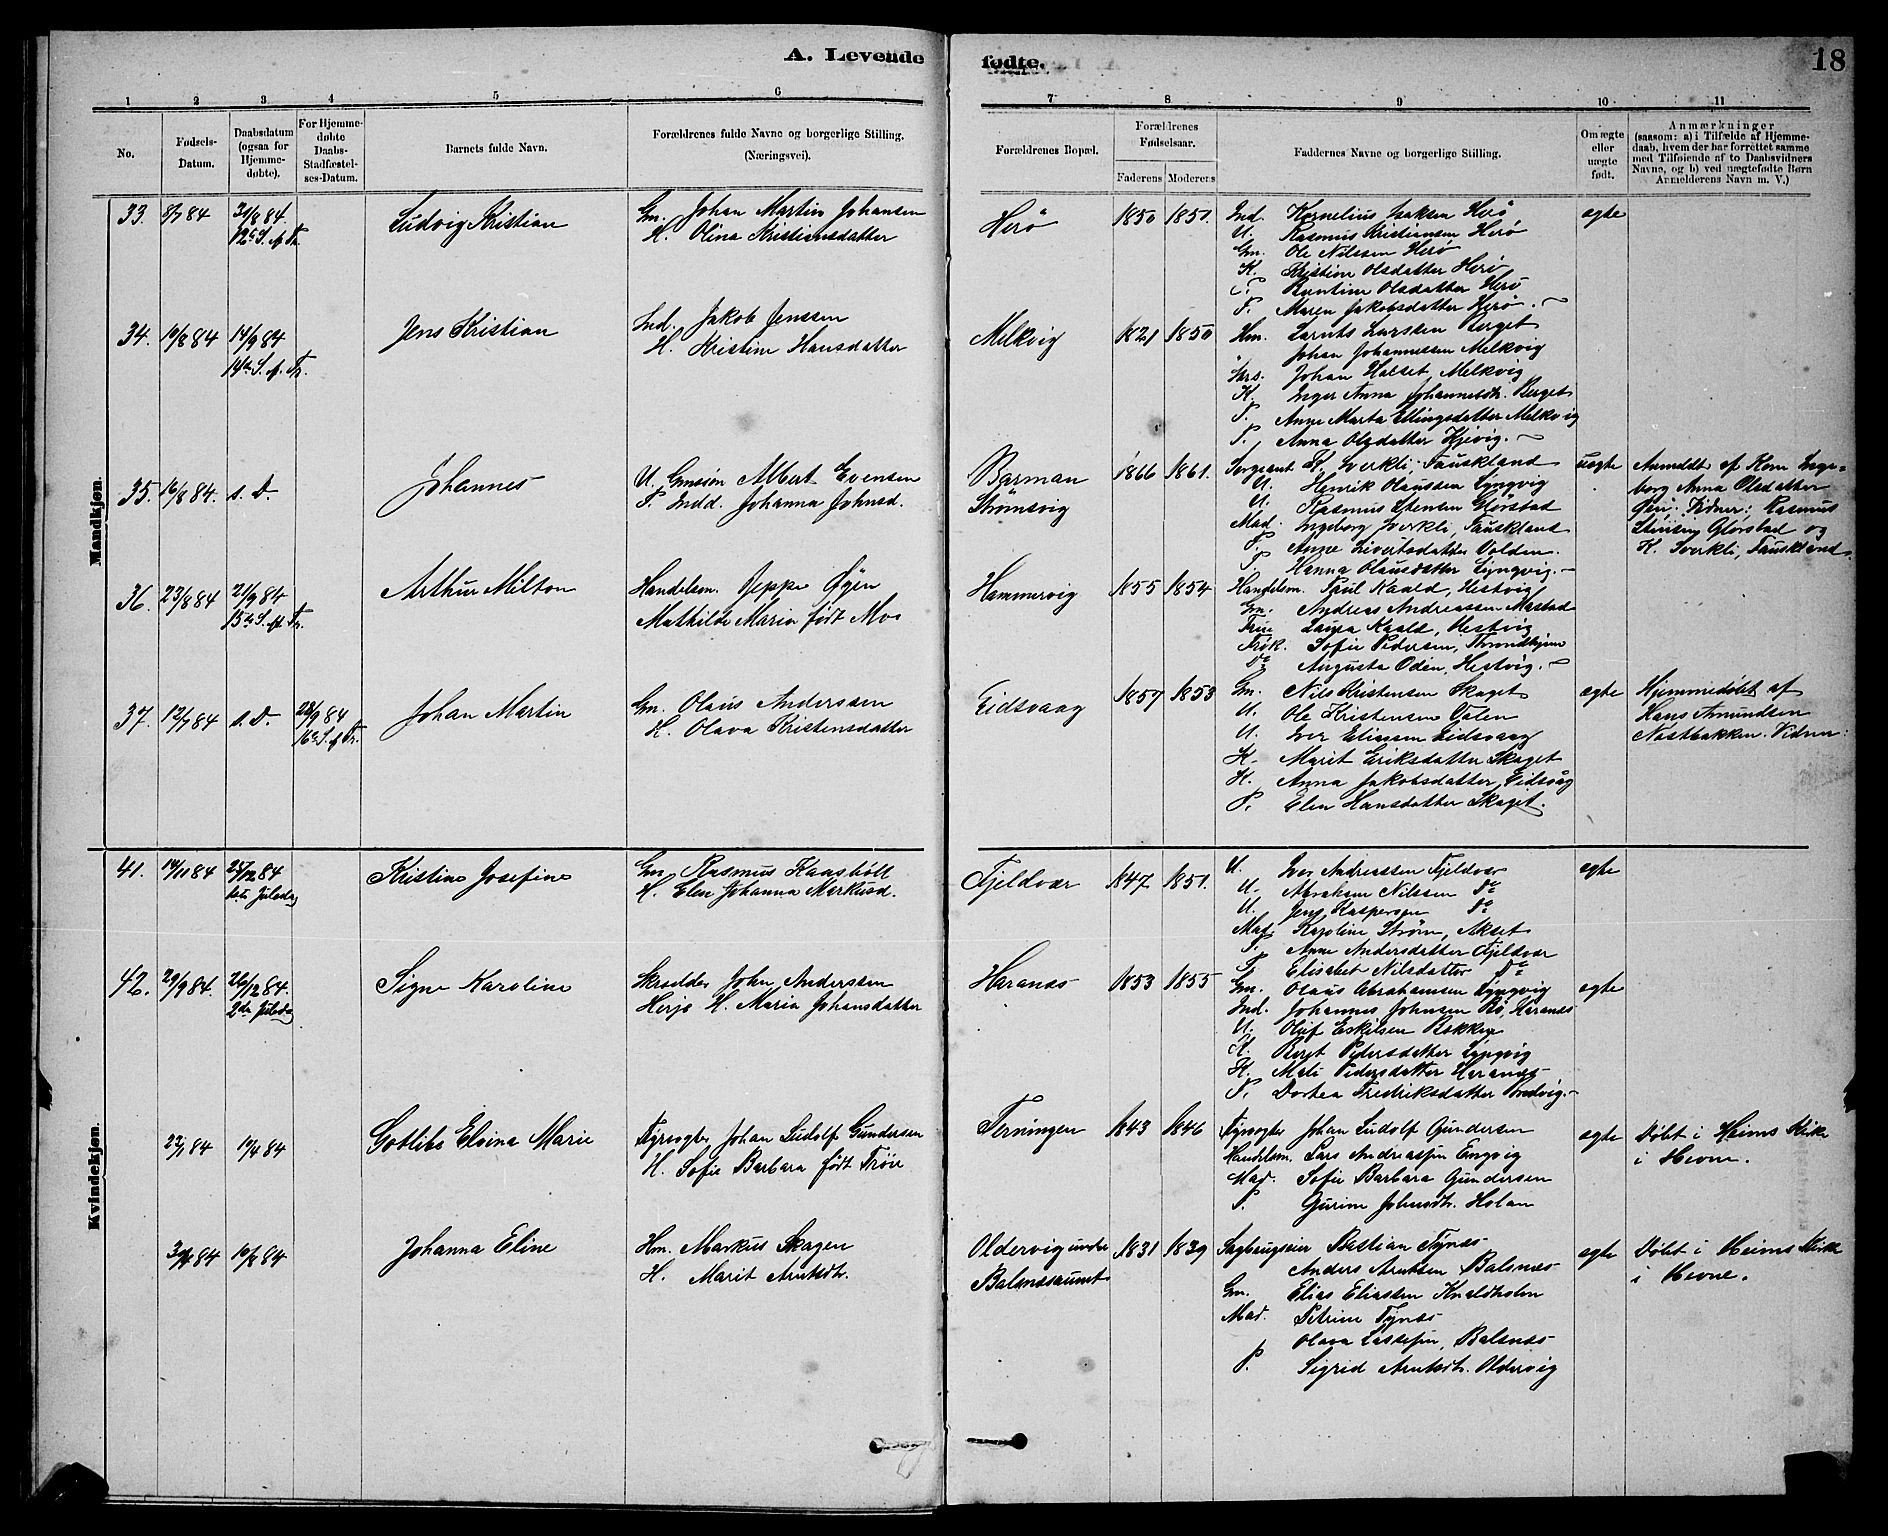 A. Levende fødte.
18
1 2 3 4 5 6 7 8. 9 10 11
No.
Fødsels-Datum.
Daabsdatum (ogsaa for Hjemme-døbte).
For Hjemme-døbte Daabs-Stadfæstel-ses-Datum.
Barnets fulde Navn.
Forældrenes fulde Navne og borgerlige Stilling. (Næringsvei).
Forældrenes Bopæl.
Forældrenes Fødselsaar.
Faderens Moderens
Faddernes Navne og borgerlige Stilling.
Om ægte eller uægte født.
Anmærkninger (saasom: a) i Tilfælde af Hjemme-daab, hvem der har forrettet samme med Tilføiende af to Daabsvidners Navne, og b) ved uægtefødte Børn Anmelderens Navn m. V.)
Mandkjøn.
33. 8/7 84 31/8 84. 12te S. p. Tr.
Ludvig Kristian
Gm. Johan Martin Johansen
H. Olina Kristiansdatter
Herø 1850 1851.
Ind. Kornelius Isaksen Herø
U. Rasmus Kristiansen Herø
Gm. Ole Nilssen Herø
K. Kristine Olsdatter Herø
P. Berntine Olsdatter Herø
P. Maren Jakobsdatter Herø.
ægte
34. 10/8 84 14/9 84 14de S. p. Tr.
Jens Kristian
Ind. Jakob Jenssen
H. Kristine Hansdatter
Melkvig 1821 1850
Hm. Larents Larssen Berget
Johan Johannessen Melkvig
Skrs. Johan Halset, Melkvig
K. Inger Anna Johannesdtr. Berget
P. Anne Marta Ellingsdatter Melkvig
P. Anna Olsdatter Kjevig.
35. 16/8 84. s. D.
Johannes
U. Gmsøn Albert Evensen
P. Indd. Johanna Johnsd.
Barman
Strømsvig
1866 1861.
Sergeant K. Sverkli, Fauskland
U. Henrik Olaussen Lyngvig
U. Rasmus Stensen Glørstad
Mad. Ingeborg Sverkli, Fauskland
P. Anne Sivertsdatter Volden.
P. Hanna Olausdatter Lyngvig.
uægte
Anmeldt af Kone Inge-
borg Anna Olsdatter
Øien. Vidner: Rasmus
Stensen Glørstad og
K. Sverkli, Fauskland.
36. 23/8 84 21/9 84 15de S. p. Tr.
Arthur Milton
Handelsm. Jeppe Øyen
Mathilde Maria født Moe
Hammervig 1855 1854
Handelsm. Paul Kaald, Hestvig
Gm. Andreas Andreassen Mastad
Frue Laura Kaald, Hestvig
Frøk. Sofie Pedersen, Throndhjem
Do Augusta Oden, Hestvig.
37. 12/7 84 s. D. 28/9 84 16de S. p. Tr.
Johan Martin
Gm. Olaus Anderssen
H. Olava Kristensdatter
Eidsvaag 1857 1853
Gm. Nils Kristensen Skaget
U. Ole Kristensen Valen
U. Iver Eliassen Eidsvaag
K. Marit Eriksdatter Skaget
K. Anna Jakobsdatter, Eidsvåg
P. Elen Hansdatter Skaget.
ægte
Hjemmedøbt af
Hans Amundsen
Nøstbakken. Vidner:
Kvindekjøn.
41. 14/11 84 25/12 84 1ste Juledag
Kristine Josefine
Gm. Rasmus Kaasbøll
H. Elen Johanna Markusd.
Fjeldvær 1847 1851.
U. Iver Andreassen Fjeldvær
U. Abraham Nilssen Do
U. Jens Kaspersen Do
Mad. Karoline Strøm, Akset
P. Anne Andersdatter Fjeldvær
P. Elisabet Nilsdatter Do
ægte
42. 29/9 84. 26/12 84. 2den Juledag
Signe Karoline
Skrædder John Anderssen
Herje H. Maria Johansdatter
Haranes 1853 1855
Gm. Olaus Abrahamsen Lyngvig
Ind. Johannes Johnsen Bø, Haranes
U. Oluf Eskilsen Bakken
K. Beret Pedersdatter Lyngvig
K. Mali Pedersdatter Haranes
P. Dortea Fredriksdatter
ægte
22/1 84 14/4 84
Gotlibe Elvina Marie
Fyrvogter Johan Ludolf Gundersen
H. Sofie Barbara født Frøie
Terningen 1843 1846
Fyrvogter Johan Ludolf Gundersen
Handelsm. Lars Andreassen Engvig
Mad. Sofie Barbara Gundersen
P. Gurine Johnsdtr. Holan
ægte
Døbt i Heims Kirke
i Hevne.
30/4 84 10/8 84
Johanna Eline
Hm. Markus Skagen
H. Marit Arntsdtr.
Oldervig under
Balsnesaunet
1831 1839
Sagbrugseier Bastian Fynes
Anders Arntsen Balsnes
Gm. Elias Eliassen Knaldholen
Mad. Petrine Fynes
Olava Lassesen, Balsnes
P. Sigrid Arntsdtr. Oldervig
ægte
Døbt i Heims Kirke
i Hevne.